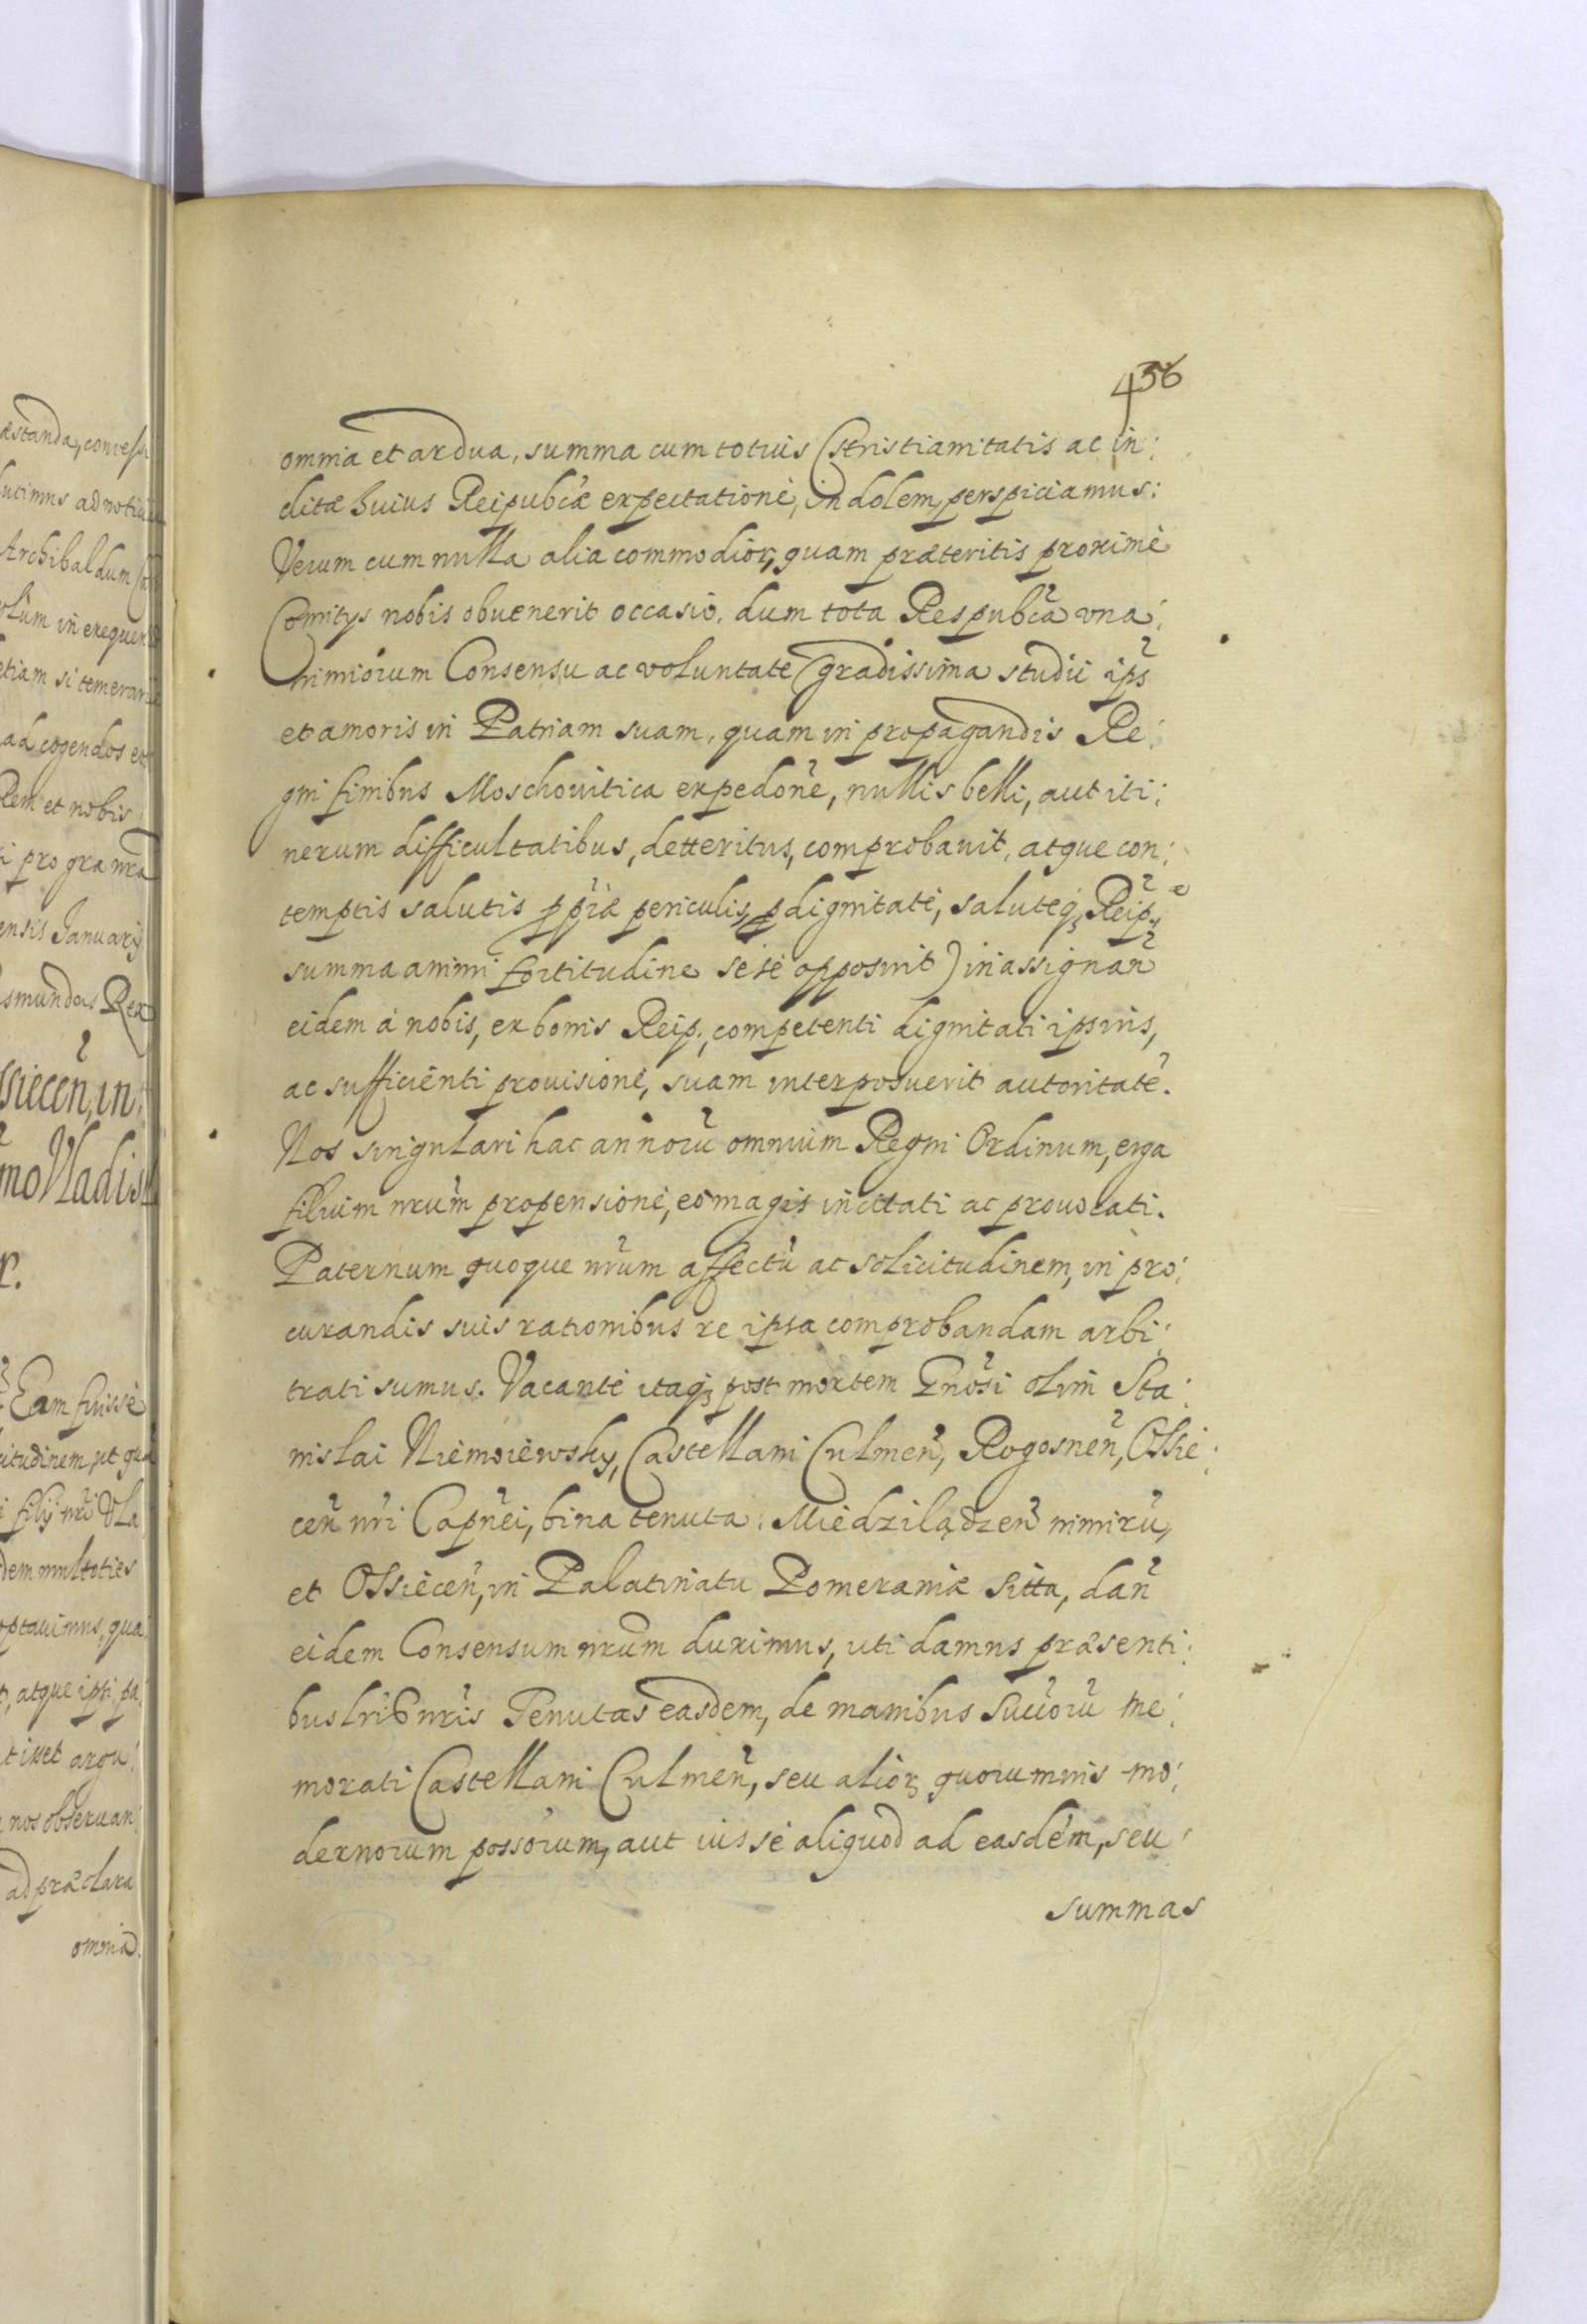 456
omnia et ardua, summa cum totius Christianitatis ac in:
clitæ huius Reipubcæ expectatione, indolem perspiciamus:
Verum cum nulla alia commodior, quam præteritis proxime
Comitys nobis obuenerit occasio, dum tota Respubca vna:
nimiorum Consensu ac voluntate (gradissima studii ips
et amoris in Patriam suam, quam in propagandis Re:
gni finibus Moschouitica expedone, nullis belli, aut iti:
nerum difficultatibus, detteritus, comprobauit, atque con:
temptis salutis ppriæ periculis, p dignitate, saluteq; Reip,
summa animi fortitudine sese opposuit) in assignan
eidem à nobis, ex bonis Reip, competenti dignitati ipsius,
ac sufficienti prouisione, suam interposuerit autoritate.
Nos singulari hac annorũ omnium Regni Ordinum, erga
filium nrum propensione, eo magis incitati ac prouocati.
Paternum quoque nrum affectũ ac solicitudinem, in pro:
curandis suis rationibus re ipsa comprobandam arbi:
trati sumus. Vacante itaq; post mortem Gnosi olim Sta:
nislai Niemoiewsky, Castellani Culmen, Rogosnen, Ossie:
cen nri Capnei, bina tenuta: Miedziłądzen nimirũ,
et Ossiecen, in Palatinatu Pomeraniæ sitta, dan
eidem Consensum nrum duximus, uti damus præsenti:
bus lrib nris Tenutas easdem, de manibus Succorũ me:
morati Castellani Culmen, seu alior quorumuis mo:
dernorum possorum, aut ius se aliquod ad easdem, seu
summas
æstanda, concess
Archibaldum
in exequen
etiam si temerar
ad cogendos
et nobis
pro gra nra
ensis January
smundus Rex
ssiecen, in
mo Vladis
Eam fuisse
citudinem, ut
filij nri Vla
dem multoties
optauimus, qua
atque ipsi, pa
argu
nos obseruan
ad præclara
omnia